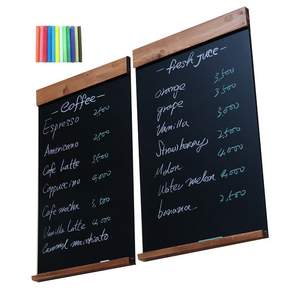 coffee
Espresso 2,500
Americano 2,500
Cafe Latte 3,500
Cappuccino 4,000
Cafe mocha 3,500
Vanilla Latte 4,000
Caramel macchiato
fresh juice
orange 3,500
grape 3,500
Vanilla 3,000
Strawberry 2,500
Melon 4,000
Water melon 4,000
banana 2,500